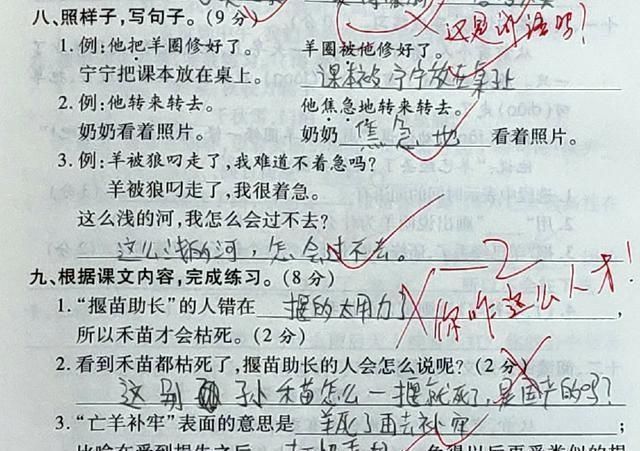 八、照样子,写句子。(9分)
这是说话吗?
1. 例:他把羊圈修好了。 羊圈被他修好了。
宁宁把课本放在桌上。 课本被宁宁放在桌上
2. 例:他转来转去。 他焦急地转来转去。
奶奶看着照片。 奶奶焦急地看着照片。
3. 例:羊被狼叼走了,我难道不着急吗?
羊被狼叼走了,我很着急。
这么浅的河,我怎么会过不去?
这么浅的河,怎会过不去。
-2
九、根据课文内容,完成练习。(8分)
你咋这么人才!
1. “揠苗助长”的人错在 揠的太用力了,
所以禾苗才会枯死。(2分)
2. 看到禾苗都枯死了,揠苗助长的人会怎么说呢?(2分)
这别 子小禾苗怎么一揠就死了,是国产的吗?
3. “亡羊补牢”表面的意思是 羊死了再去补牢;